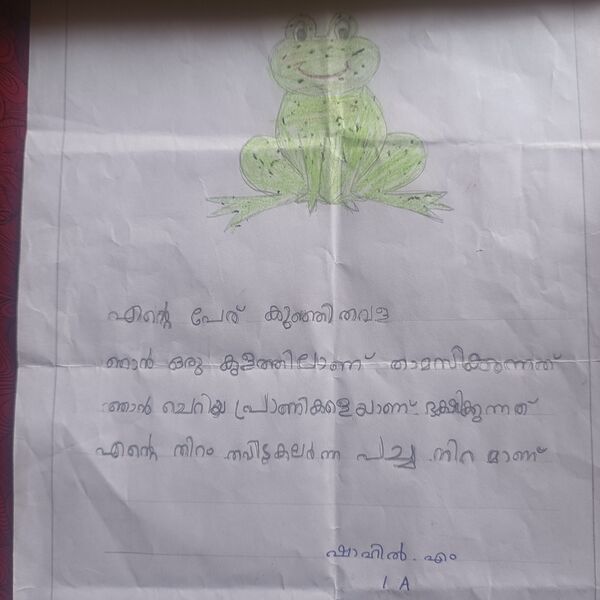 എന്റെ പേര് കുഞ്ഞിതവള
ഞാൻ ഒരു കുളത്തിലാണ് താമസിക്കുന്നത്
ഞാൻ ചെറിയ പ്രാണികളെയാണ് ഭക്ഷിക്കുന്നത്
എന്റെ നിറം തവിട്ടുകലർന്ന പച്ച നിറ മാണ്
ഷാഹിൽ. എം
1 A